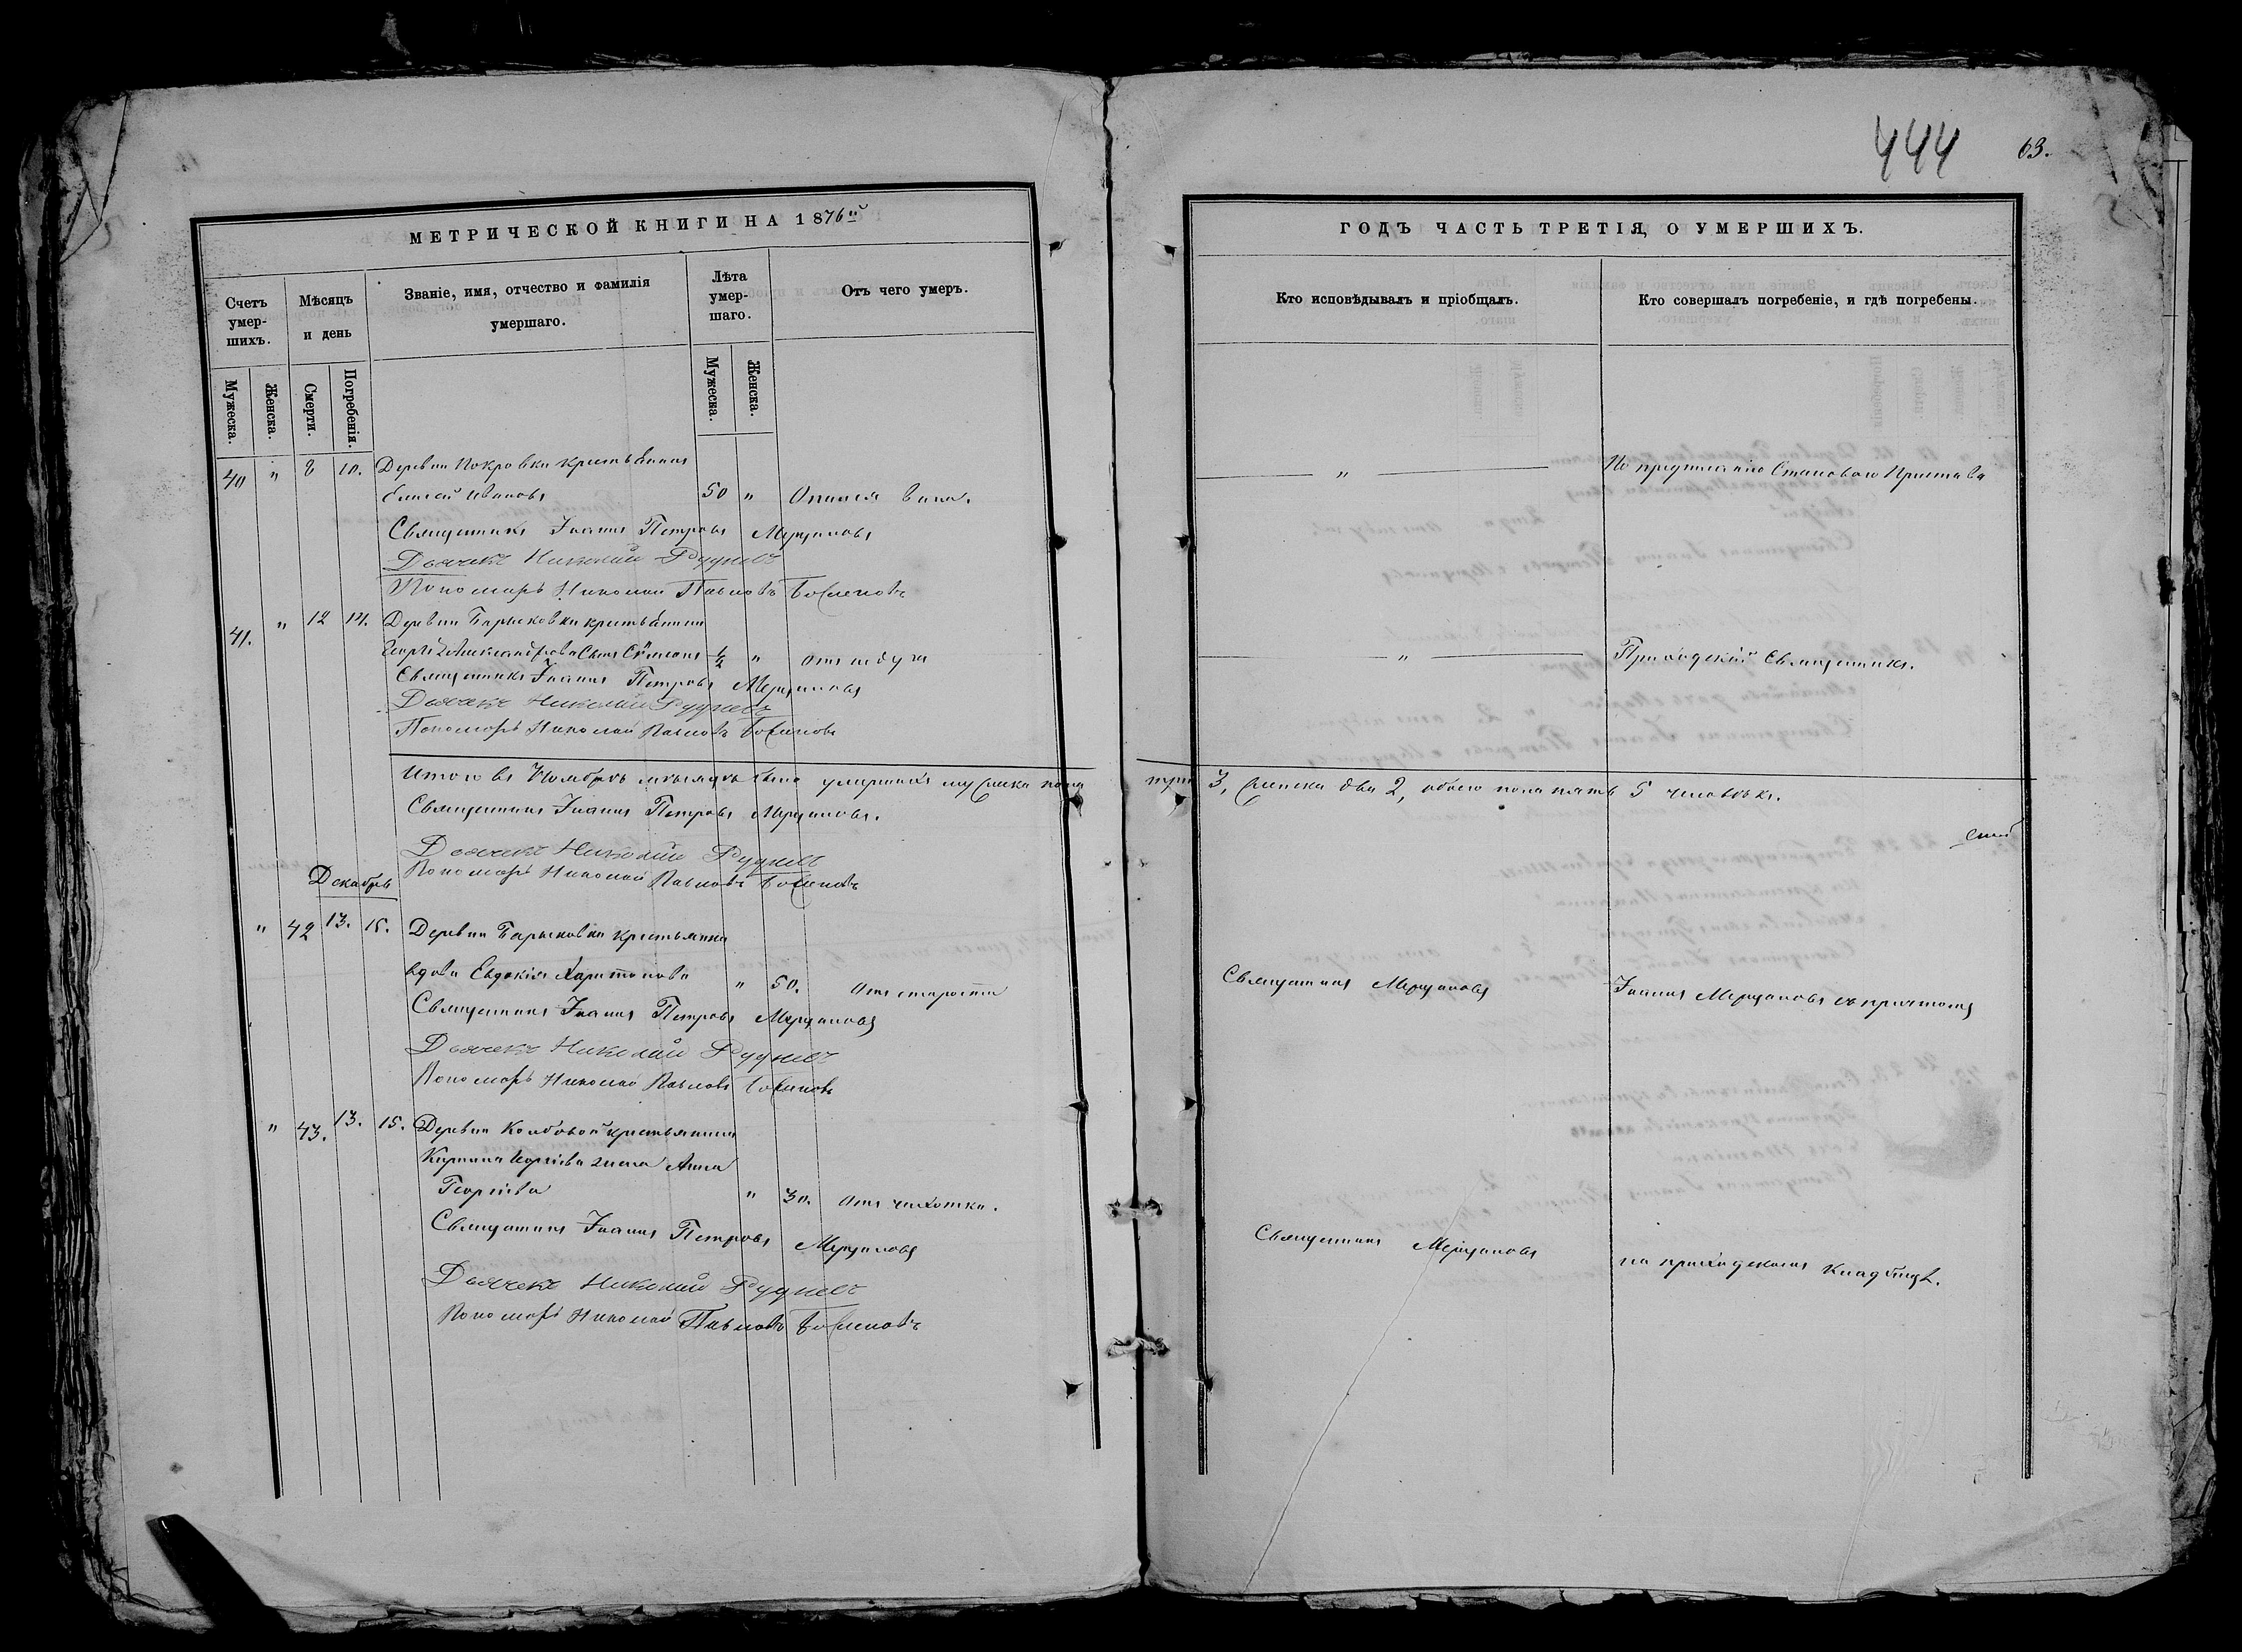 444 63.
МЕТРИЧЕСКОЙ КНИГИ НА 1876й
Счетъ умер-шихъ.
Мѣсяцъ и день
Званіе, имя, отчество и фамилія
умершаго.
Лѣта умер-шаго.
Отъ чего умеръ.
Мужеска.
Женска.
Смерти.
Погребенія.
Мужеска.
Женска.
40 " 8 10. Деревни Покровки крестьянинъ
Елисей Ивановъ 50 " Опился вина.
Священникъ Іоаннъ Петровъ Мерцаловъ
Дьячекъ Николай Рудневъ
Пономарь Николай Павловъ
41. " 12 14. Деревни Барыковки крестьянина
Александрова сынъ Симеонъ ½ " отъ недуга
Священникъ Іоаннъ Петровъ Мерцаловъ
Дьячекъ Николай Рудневъ
Пономарь Николай Павловъ
Итого въ Ноябрѣ мѣсяцѣ было умершихъ мужеска пола
Священникъ Іоаннъ Петровъ Мерцаловъ.
Дьячекъ Николай Рудневъ
Пономарь Николай Павловъ
Декабрь
" 42 13. 15. Деревни Барыковки крестьянка
вдова Евдокія Харитонова " 50. Отъ старости
Священникъ Іоаннъ Петровъ Мерцаловъ
Дьячекъ Николай Рудневъ
Пономарь Николай Павловъ
" 43. 13. 15. Деревни крестьянина
жена Анна
Георгіева " 30. Отъ чахотки.
Священникъ Іоаннъ Петровъ Мерцаловъ
Дьячекъ Николай Рудневъ
Пономарь Николай Павловъ
ГОДЪ ЧАСТЬ ТРЕТІЯ, О УМЕРШИХЪ.
Кто исповѣдывалъ и пріобщалъ.
Кто совершалъ погребеніе, и гдѣ погребены.
" По предписанію Становаго Пристава
" Приходскій Священникъ.
три 3, женска два 2, обоего пола пять 5 человѣкъ.
Священникъ Мерцаловъ Іоаннъ Мерцаловъ съ причтомъ
Священникъ Мерцаловъ на приходскомъ кладбищѣ.